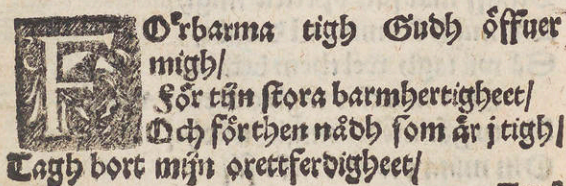 FOͤrbarma tigh Gudh öffuer
migh/
För tijn stora barmhertigheet/
Och för then nådh som är j tigh/
Tagh bort mijn orettferdigheet/